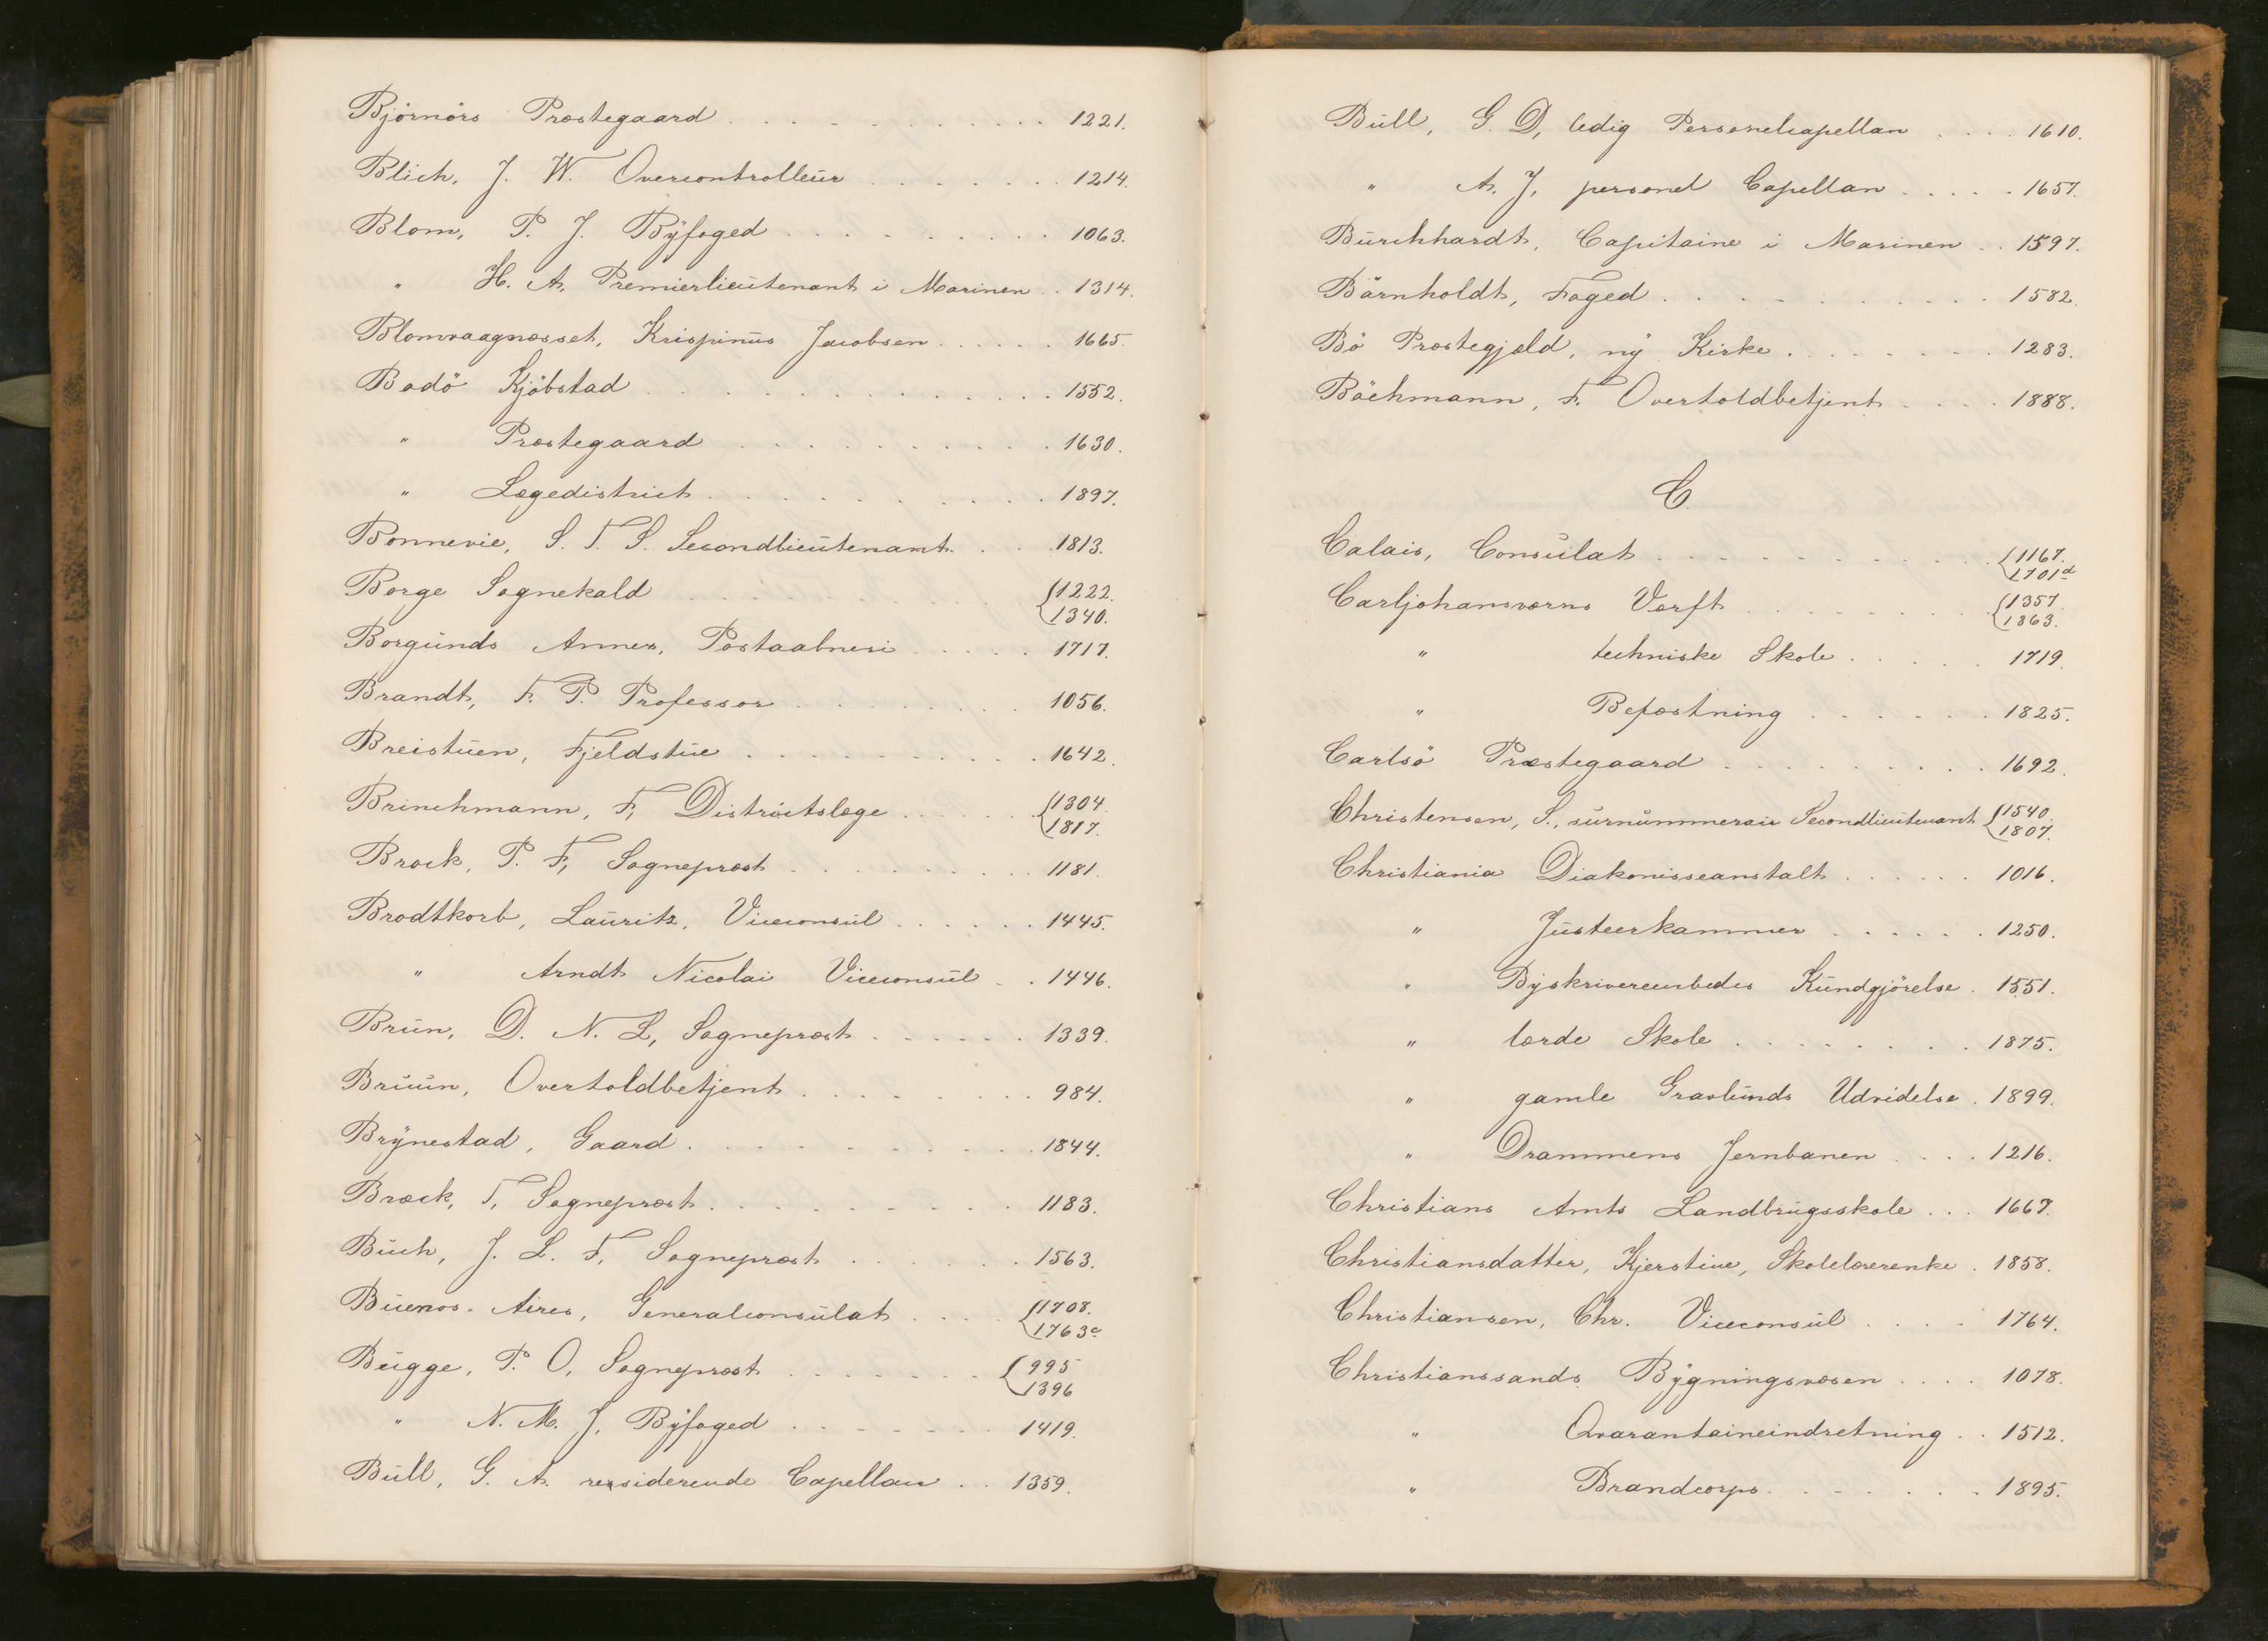 Björnörs Præstegaard . . . . . . . . . . . 1221.
Blich, J. W. Overcontrolleur . . . . . . . 1214.
Blom, P. J. Byfoged . . . . . . . . . . 1063.
" H. A. Premierlieutenant i Marinen . . 1314.
Blomvaagnæsset, Krispinus Jacobsen . . . . . . 1665.
Bodö Kjöbstad . . . . . . . . . . . . 1552.
" Præstegaard . . . . . . . . . . 1630.
" Lægedistrict . . . . . . . . . . 1897.
Bonnevie, S. T. S. Secondlieutenant . . . 1813.
Borge Sognekald . . . . . . . . . . {1222.
1340.
Borgunds Annex, Postaabneri . . . . . 1717.
Brandt, F. P. Professor . . . . . . . . 1056.
Breistuen, Fjeldstue . . . . . . . . . . 1642.
Brinchmann, F, Districtslæge . . . . . . {1304.
1817.
Brock, P. F, Sogneprest . . . . . . . . . 1181.
Brodtkorb, Lauritz, Viceconsul . . . . . . 1445.
" Arndt Nicolai Viceconsul . . 1446.
Brun, D. N. L, Sogneprest . . . . . . 1339.
Bruun, Overtoldbetjent . . . . . . . . . 984.
Brynestad, Gaard . . . . . . . . . . . 1844.
Bræck, T, Sogneprest . . . . . . . . . 1183.
Buch, J. L. F, Sogneprest . . . . . . 1563.
Buenos-Aires, Generalconsulat . . . . {1708.
1763c
Bugge, P. O, Sogneprest . . . . . . . {995
1396
" N. M. J, Byfoged . . . . . . . 1419.
Bull, G. A. ressiderende Capellan . . 1359.
Bull, G. D, ledig Personelcapellan . . . . 1610.
" A. J, personel Capellan . . . . . 1657.
Burchhardt, Capitaine i Marinen . . 1597.
Bärnholdt, Foged . . . . . . . . . . 1582.
Bö Præstegjæld, ny Kirke . . . . . . . . 1283.
Böchmann, F. Overtoldbetjent . . . . 1888.
C.
Calais, Consulat . . . . . . . . . . . {1167.
1701d
Carljohansværns Værft . . . . . . . {1357.
1863.
" techniske Skole . . . . . 1719.
" Befæstning . . . . . . 1825.
Carlsö Præstegaard . . . . . . . . . 1692.
Christensen, S., surnummerair Secondlieutenant {1540.
1807.
Christiania Diakonisseanstalt . . . . . . 1016.
" Justeerkammer . . . . . . 1250.
" Byskriverembedes Kundgjörelse . 1551.
" lærde Skole . . . . . . . . 1875.
" gamle Gravlunds Udvidelse . 1899.
" Drammens Jernbanen . . . . 1216.
Christians Amts Landbrugsskole . . . 1667.
Christiansdatter, Kjerstine, Skolelærerenke . 1858.
Christiansen, Chr. Viceconsul . . . . 1764.
Christianssands Bygningsvæsen . . . . 1078.
" Qvarantaineindretning . . 1512.
" Brandcorps . . . . . . . 1895.